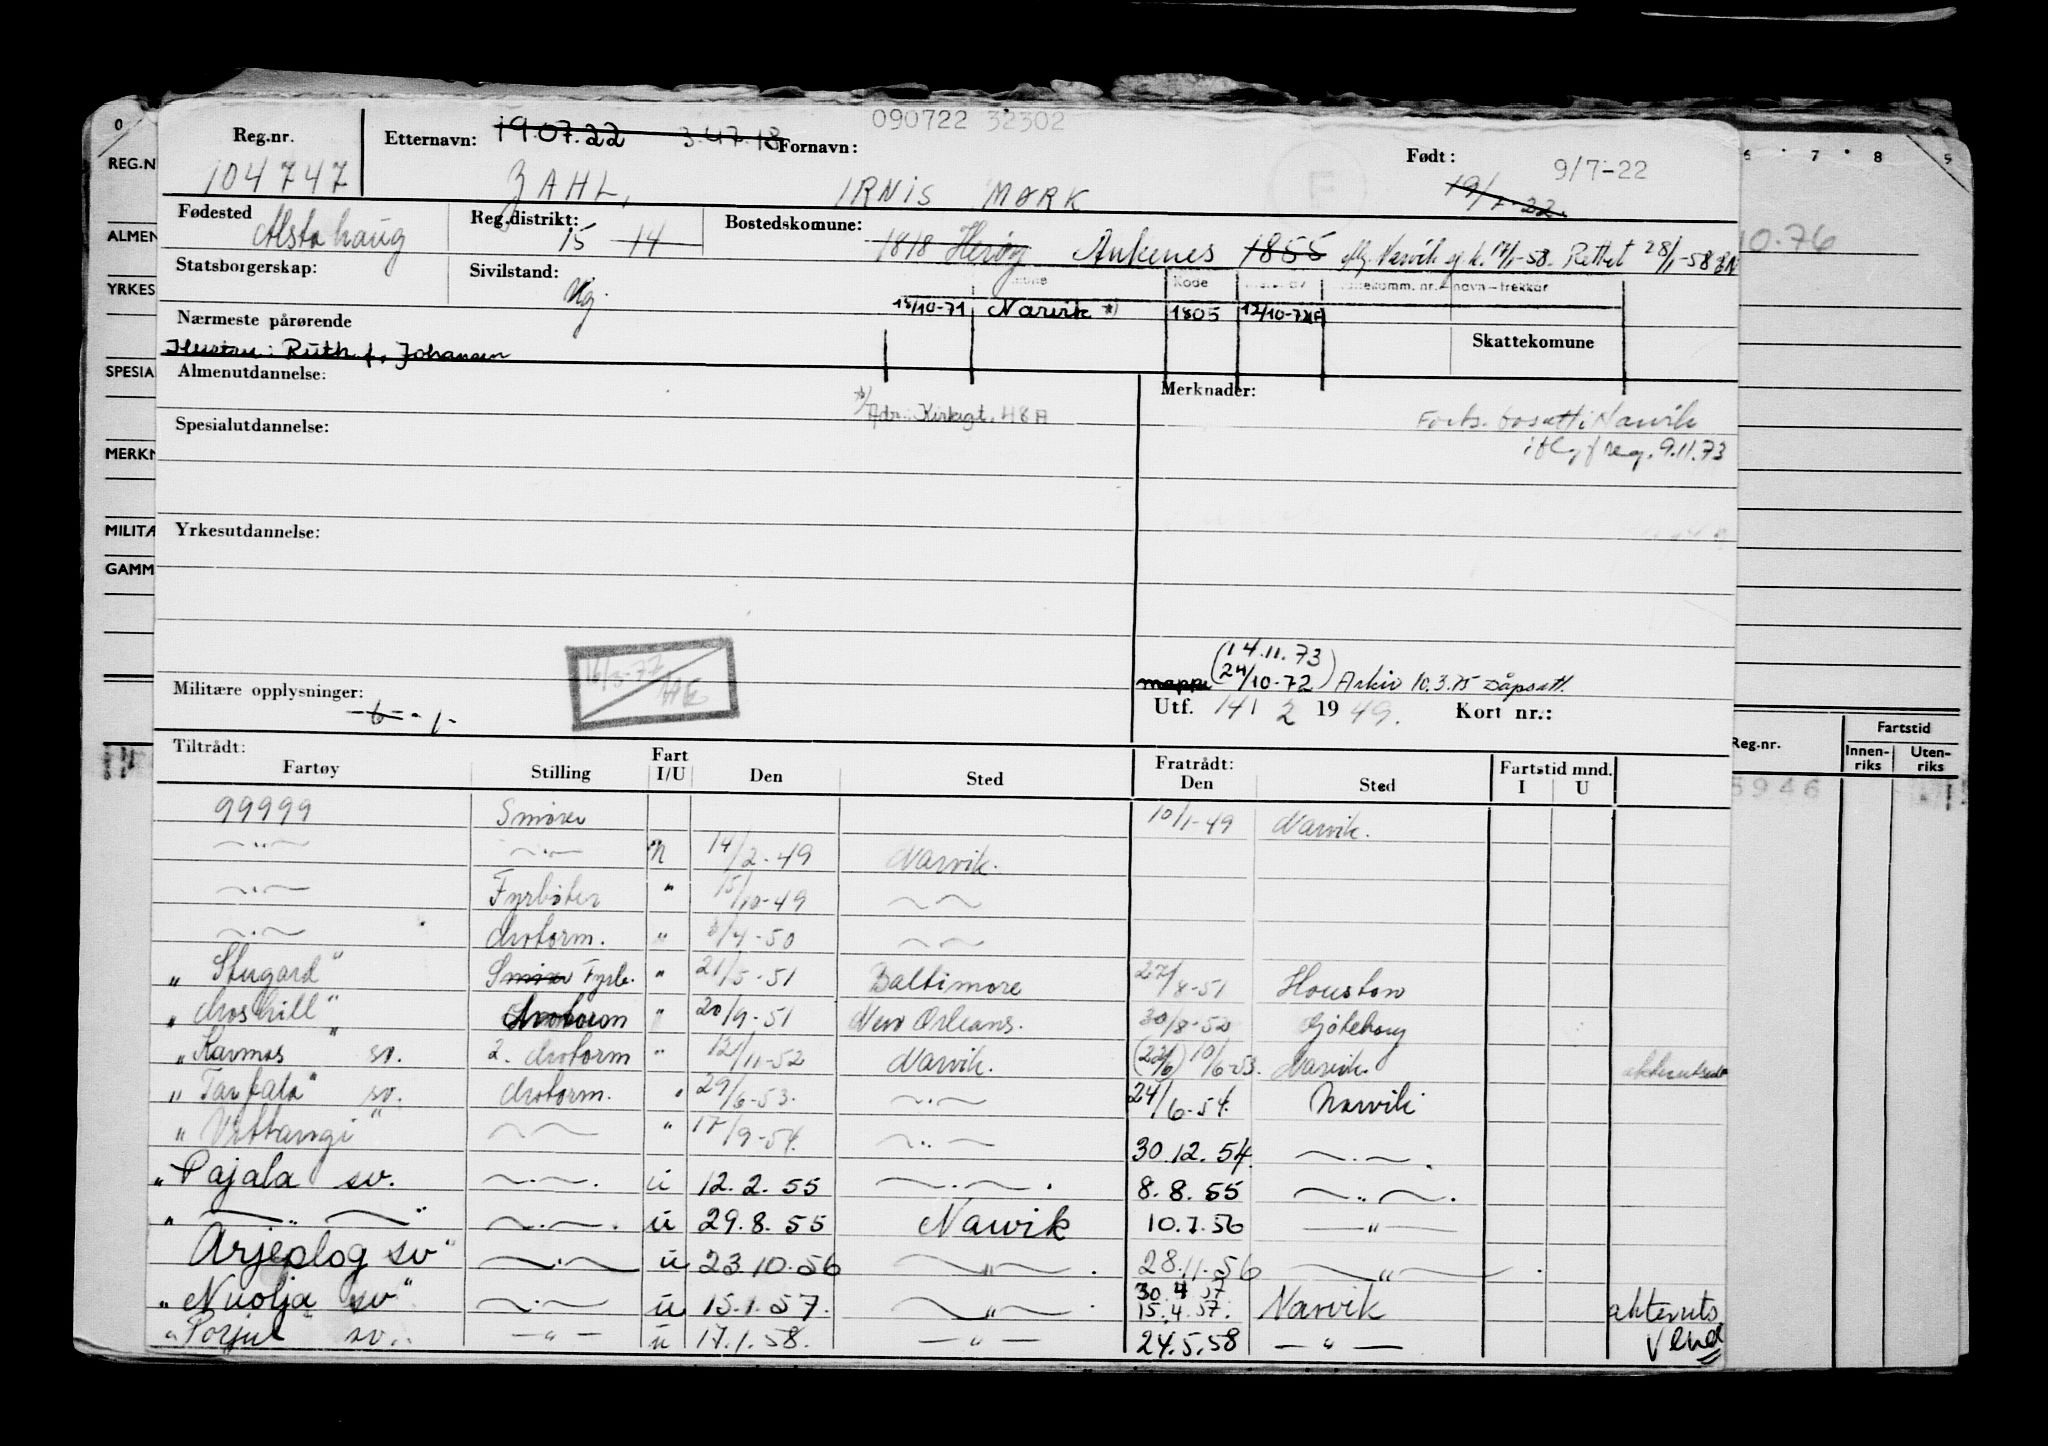 090722 32302
Reg.nr. Etternavn: 19.07.22 3.47.18 Fornavn: Født: 9/7-22
104747 ZAHL, IRNIS MØRK 19/7-22
Fødested Alstahaug Reg.distrikt: 15 14 Bostedskomune: 1818 Herøy Ankenes 1855 Narvik 17/1-58. Rettet 28/1-58
Statsborgerskap: Sivilstand: Ug. Kode navn-trekkar
15/10-71 Narvik *) 1805 12/10-72
Nærmeste pårørende Skattekomune
Hustru: Ruth f. Johansen
Almenutdannelse: Merknader:
*) Adr.: Kirkegt. 48A Forts. bosatt i Narvik
Spesialutdannelse: reg. 9.11.73
Yrkesutdannelse:
(14.11.73
mappe 24/10-72) Arkiv 10.3.75 Dåpsatt.
Militære opplysninger: -6- -1- 16/3-77
Utf. 14/ 2 1949. Kort nr.:
Tiltrådt: Fart Fratrådt: Fartstid mnd.
Fartøy Stilling I/U Den Sted Den Sted I U
99999 Smører 10/1-49 Narvik.
—„— —„— 14/2-49 Narvik.
—„— Fyrbøter " 15/10-49 —„—
—„— Motorm. " /4-50 —„—
„Stugard" Smører Fyrb. " 21/5-51 Baltimore 27/8-51 Houston
„Moshill" Motorm " 20/9-51 New Orleans. 30/8-52 Göteborg
„Karmas" sv. 2. Motorm " 12/11-52 Narvik. 10/6-53. Narvik.
„Tarfala" sv. Motorm. " 29/6-53. —„— 24/6-54. Narvik
„Vittangi" —„— " 17/9-54. —„— 30.12.54. —„—.
„Pajala sv. —„—. u 12.2.55 —„—. 8.8.55 —„—.
„ —„— " —„—. u 29.8.55 Narvik 10.7.56 —„—
Arjeplog sv" —„— u 23.10.56 —„—. 28.11.56 —„—.
30.4.57
„Nuolja sv" —„— u 15.1.57. —„—. 15.4.57. Narvik akteruts
„Porjus" sv. —„— u 17.1.58. —„— 24.5.58 —„— Vend
0
REG.N
ALMEN
YRKES
SPESIAL
MERKN
MILITÆ
GAMM
7 8 9
10.76
Reg.nr. Fartstid
Innen-riks Uten-riks
5946